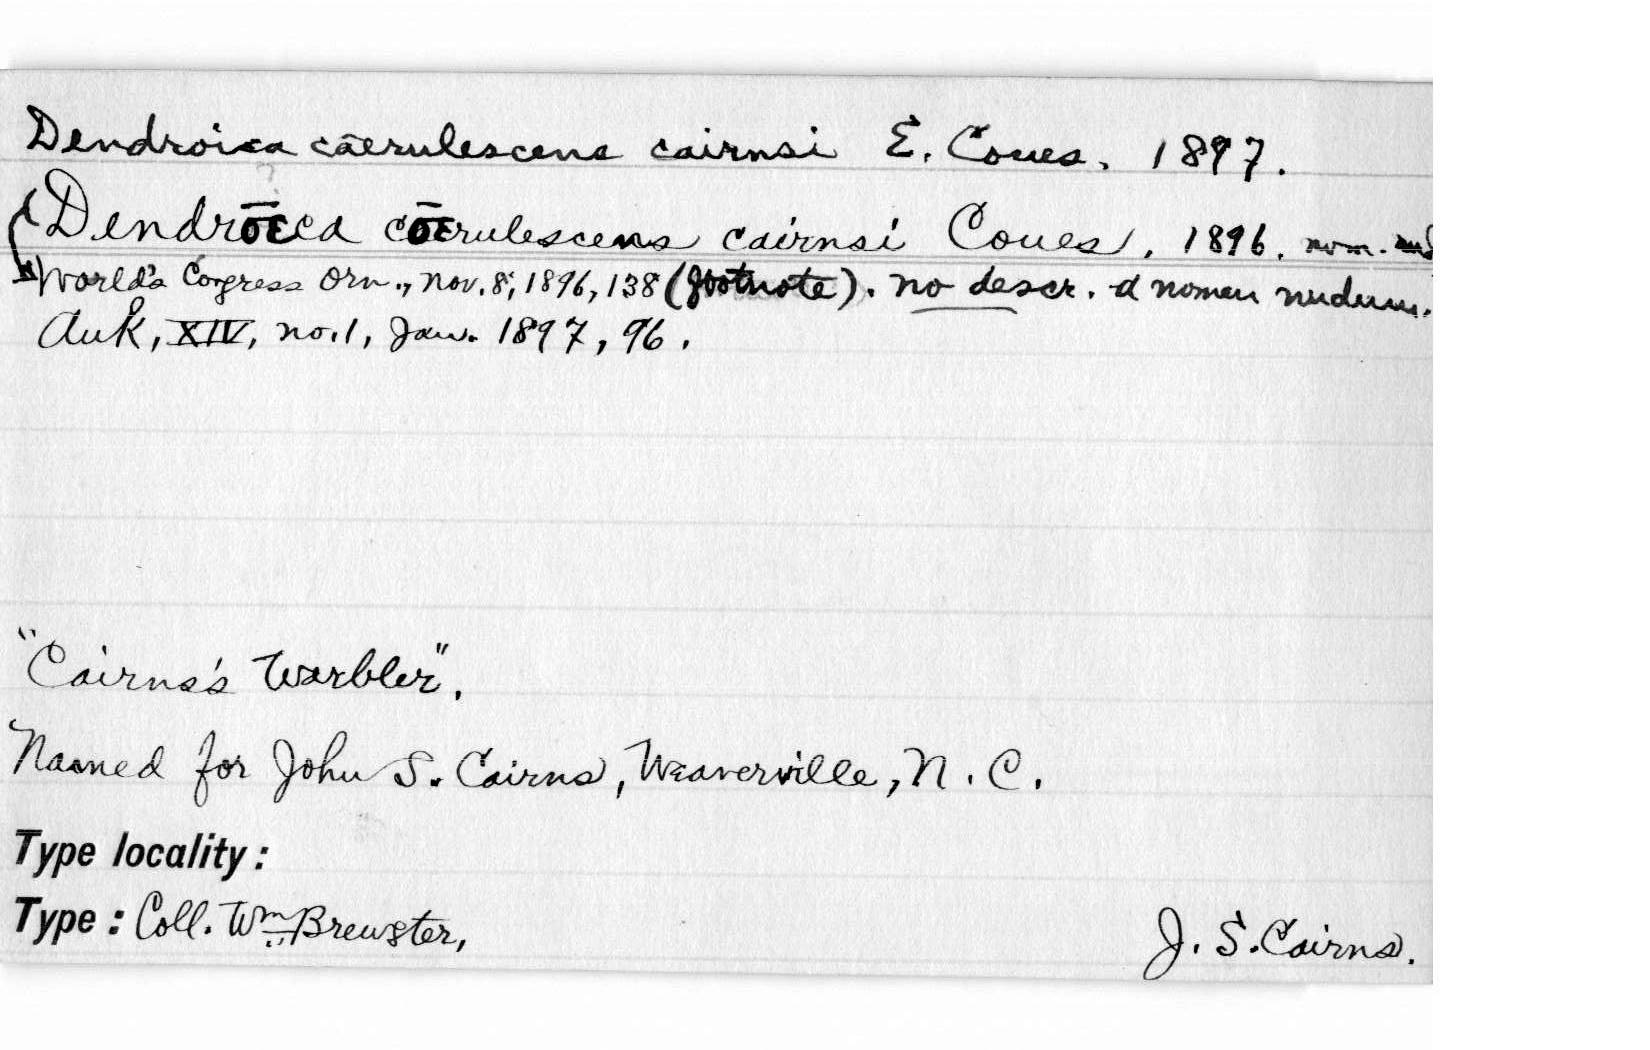 Dendroica cāerulescens cairnsi E. Coues. 1897.
Dendrœca cœrulescens cairnsi Coues, 1896. nom. nud
World's Congress Orn., Nov. 8, 1896, 138 (footnote). no descr. A nomen nudum.
Auk, XIV, no. 1, Jan. 1897, 96.
"Cairns's Warbler".
Named for John S. Cairns, Weaverville, N. C.
Type locality:
Type: Coll. Wm Brewster, J. S. Cairns.